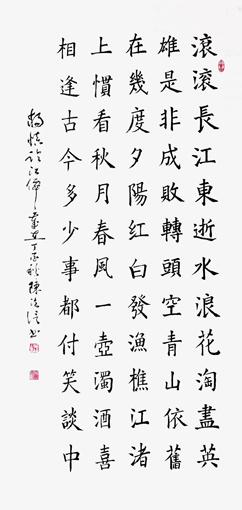 滾滾長江東逝水浪花淘盡英
雄是非成敗轉頭空青山依舊
在幾度夕陽紅白發漁樵江渚
上慣看秋月春風一壺濁酒喜
相逢古今多少事都付笑談中
楊慎 江 秋 陳 書